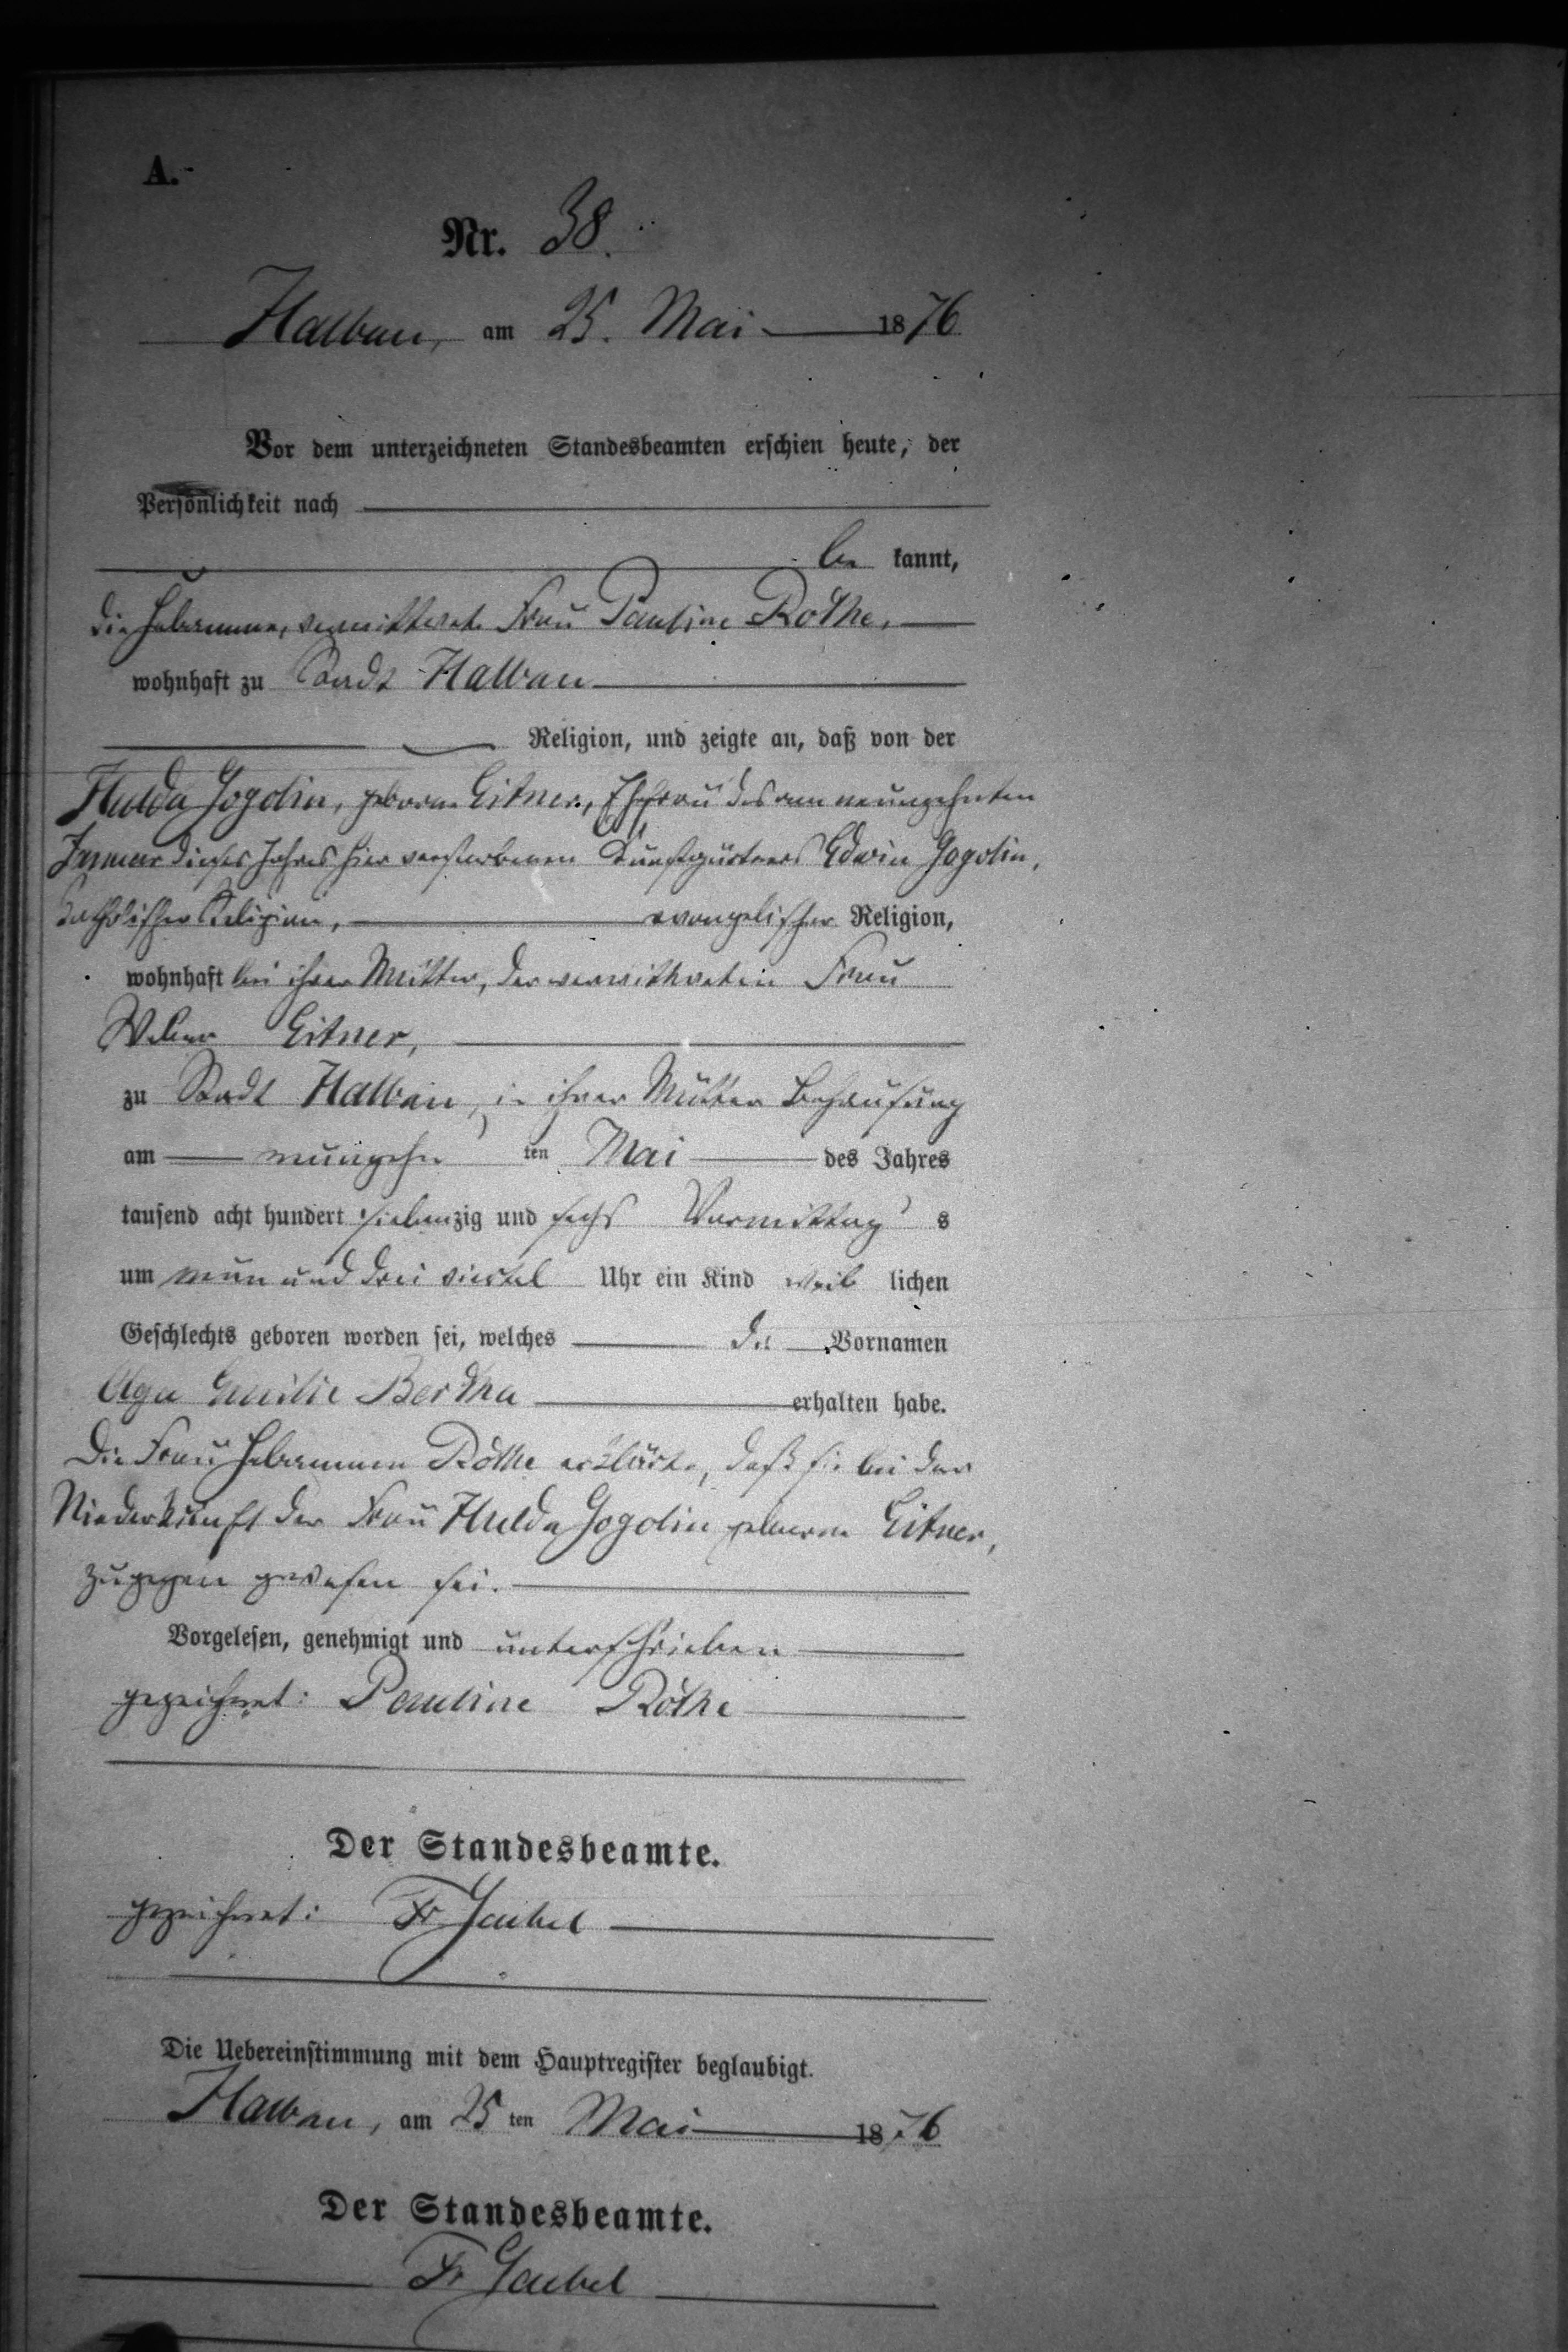 A.
Nr. 38.
Halbau, am 25. Mai 1876
Vor dem unterzeichneten Standesbeamten erschien heute, der
Persönlichkeit nach
be kannt,
die Hebamme, verwittwete Frau Pauline Röthe,
wohnhaft zu Stadt Halbau
Religion, und zeigte an, daß von der
Hulda Gogolin, geborne Eitner, Ehefrau des am neunzehnten
Januar dieses Jahres hier verstorbenen Kunstgärtners Edwin Gogolin,
katholischer Religion, evangelischer Religion,
wohnhaft bei ihrer Mutter, der verwittweten Frau
Weber Eitner,
zu Stadt Halbau, in ihrer Mutter Behausung
am neunzehn ten Mai des Jahres
tausend acht hundert siebenzig und sechs Vormittag s
um neun und drei viertel Uhr ein Kind weib lichen
Geschlechts geboren worden sei, welches die Vornamen
Emilie Bertha erhalten habe.
Die Frau Hebamme Röthe erklärte, daß sie bei der
Niederkunft der Frau Hulda Gogolin geborne Eitner,
zugegen gewesen sei.
Vorgelesen, genehmigt und unterschrieben
gezeichnet: Pauline Röthe
Der Standesbeamte.
gezeichnet: Fr Gaebel
Die Uebereinstimmung mit dem Hauptregister beglaubigt.
Halbau, am 25 ten Mai 1876
Der Standesbeamte.
Fr Gaebel